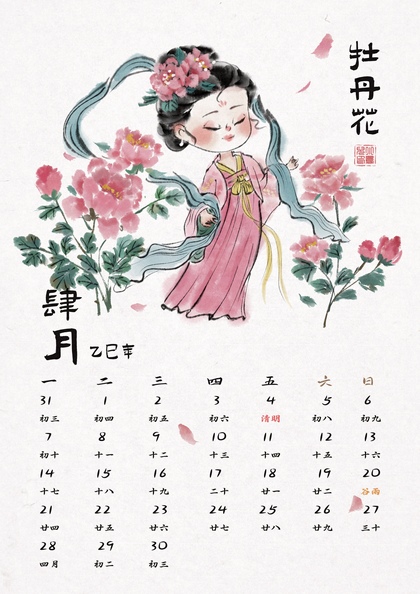 牡丹花
肆月
乙巳年
一 二 三 四 五 六 日
31 1 2 3 4 5 6
初三 初四 初五 初六 清明 初八 初九
7 8 9 10 11 12 13
初十 十一 十二 十三 十四 十五 十六
14 15 16 17 18 19 20
十七 十八 十九 二十 廿一 廿二 谷雨
21 22 23 24 25 26 27
廿四 廿五 廿六 廿七 廿八 廿九 三十
28 29 30
四月 初二 初三